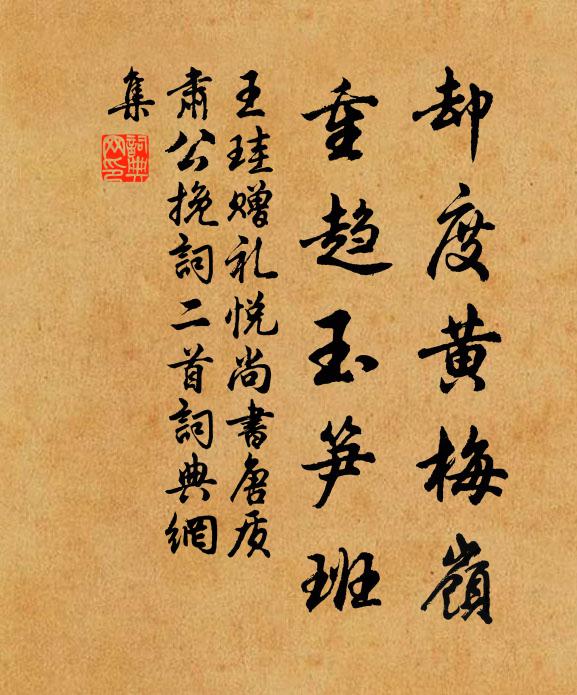 却度黄梅嶺
重趋玉笋班
王珪赠礼悦尚書唐质
肃公挽詞二首詞典網
集
詞典
网印